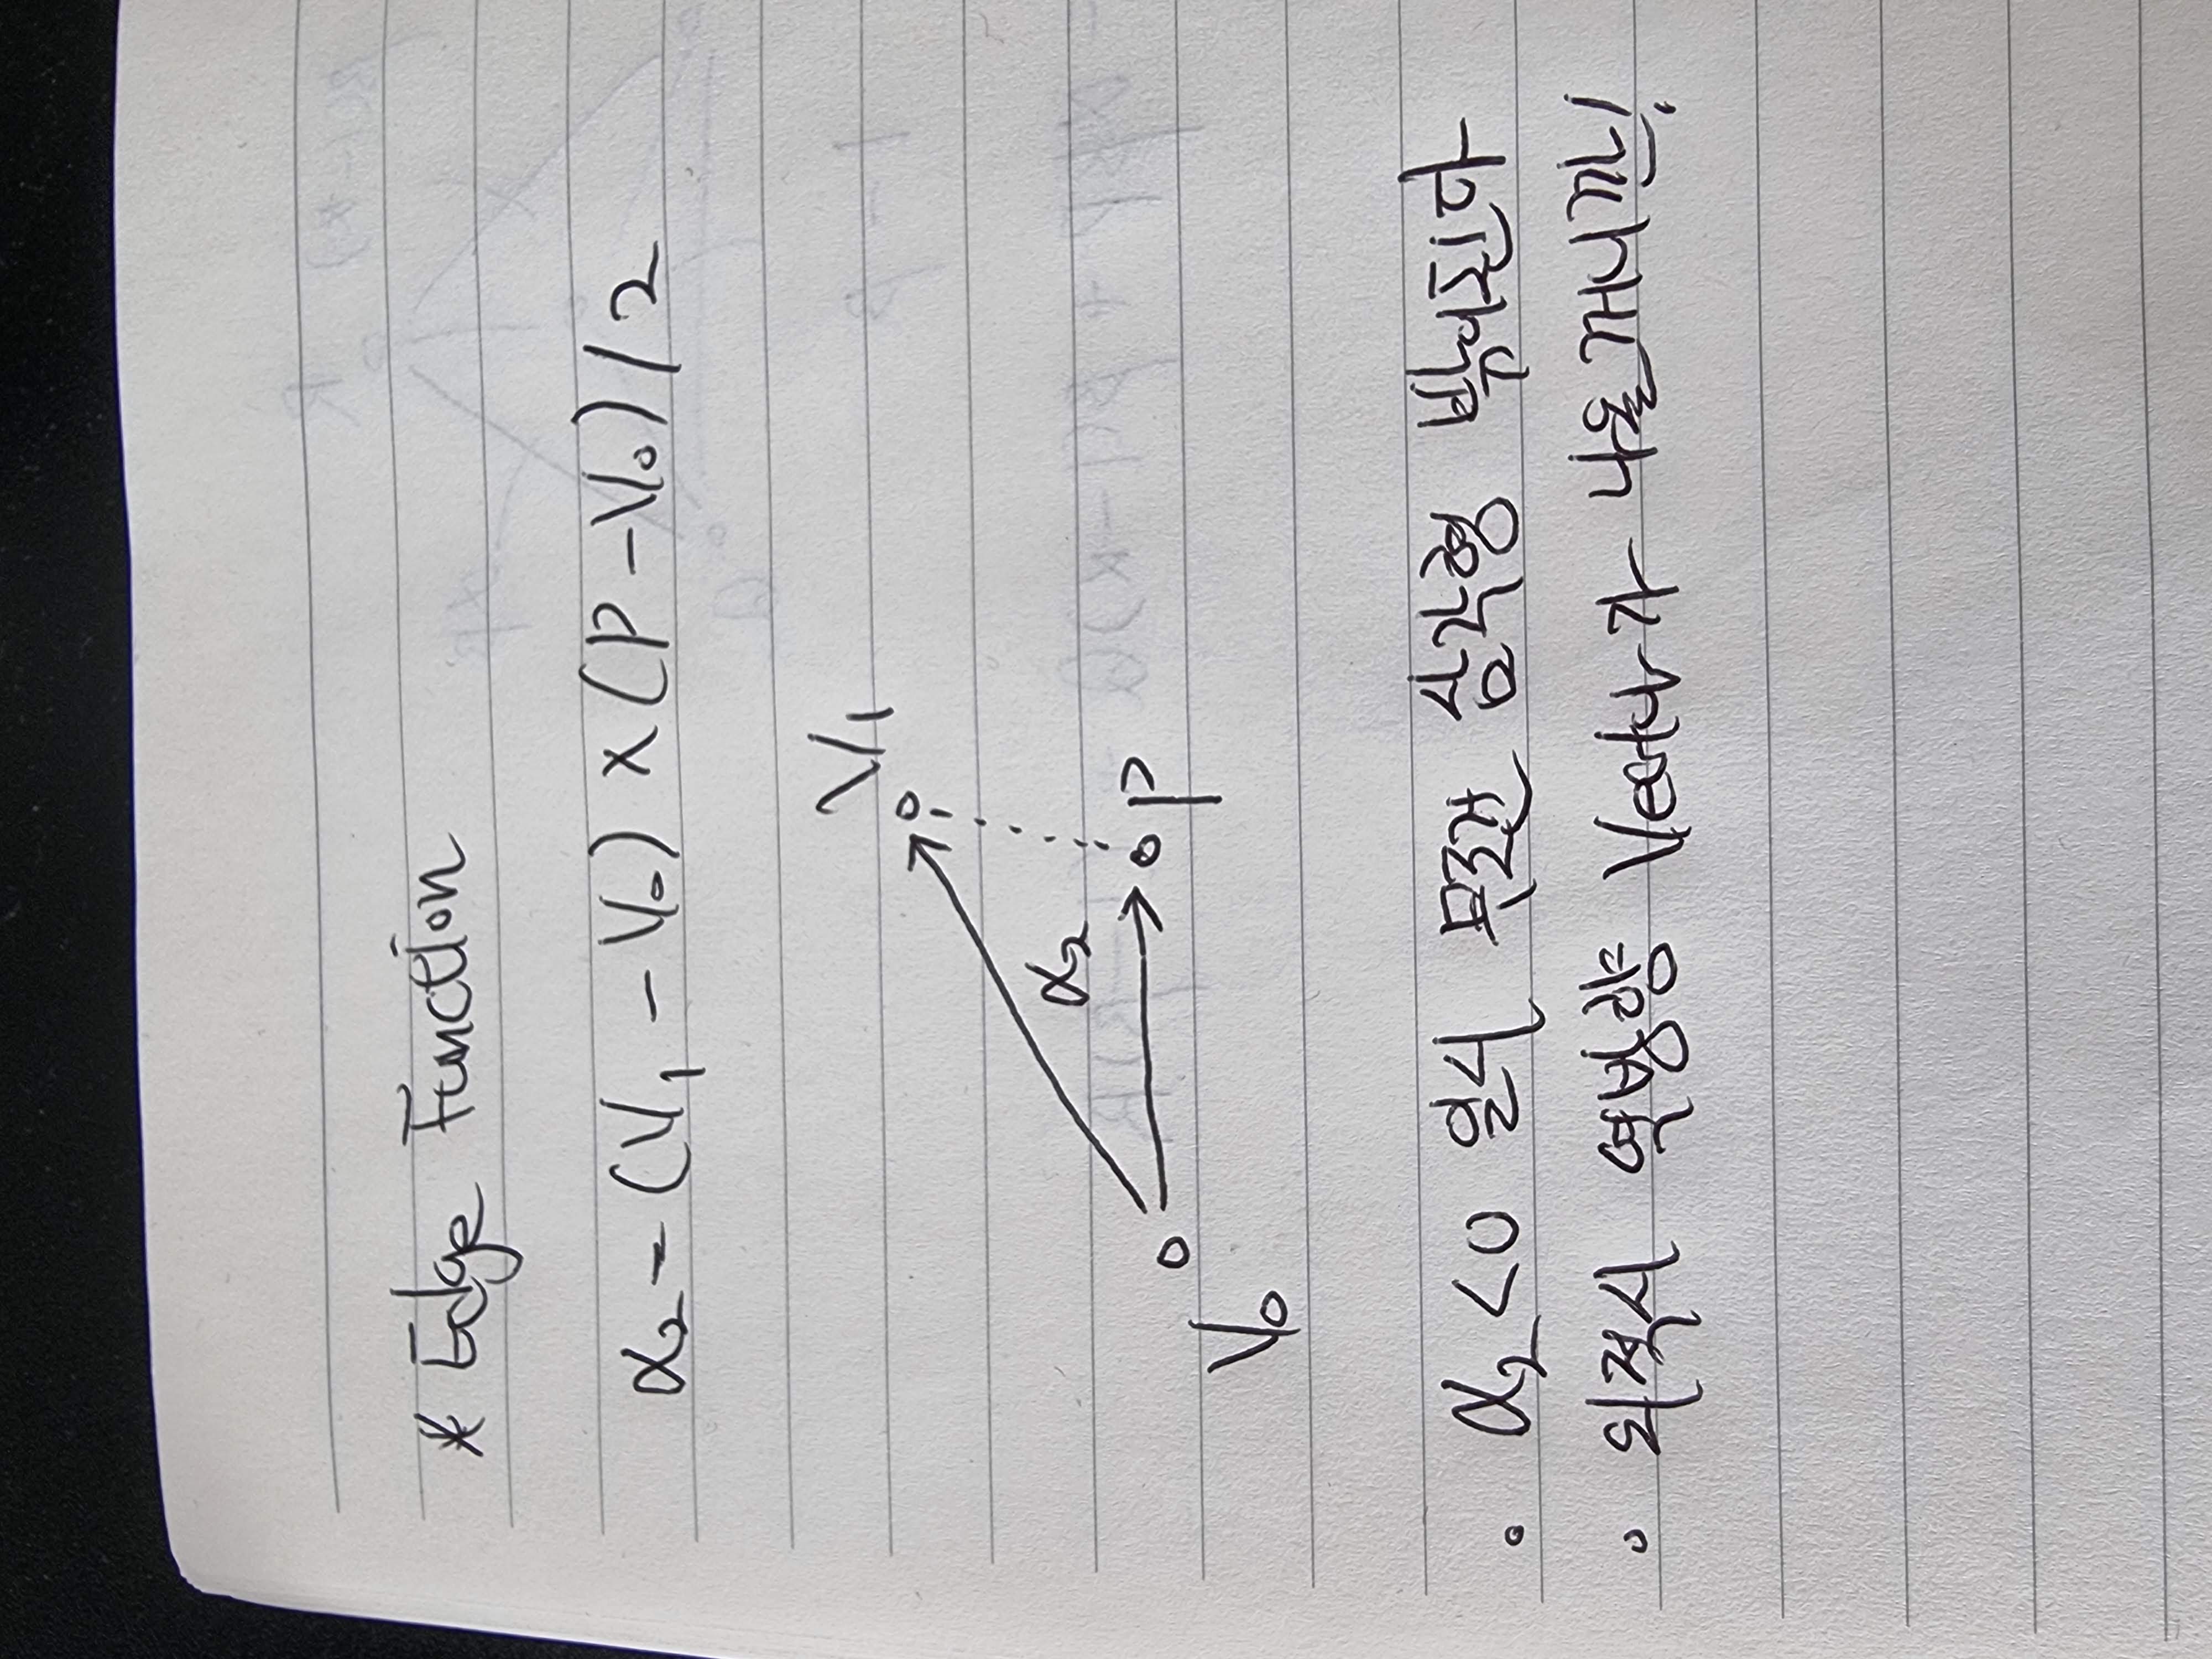 * Edge Function
α₂ = (V₁ - V₀) × (P - V₀) / 2
V₁
α₂
P
V₀
· α₂ < 0 일시 무조건 삼각형 밖이된다
· 외적시 역방향 Vector가 나올꺼니깐!